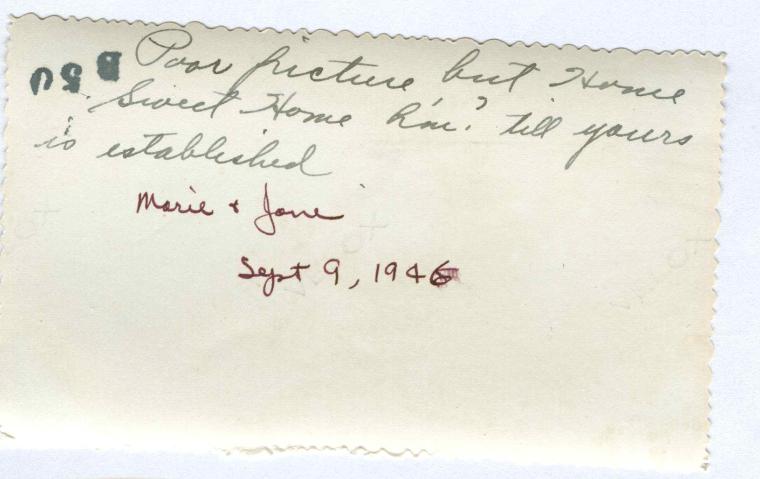 B50
Poor picture but Home
Sweet Home h'm? till yours
is established
Marie + Jane
Sept 9, 1946